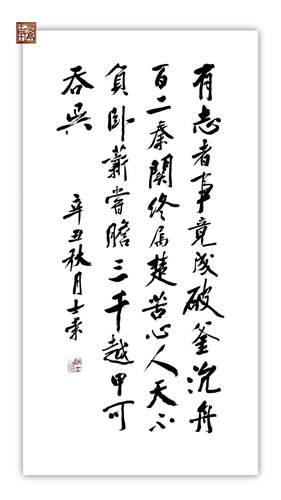 有志者事竟成破釜沉舟
百二秦关终属楚苦心人天不
负卧薪尝胆三千越甲可
吞吴
辛丑秋月士东